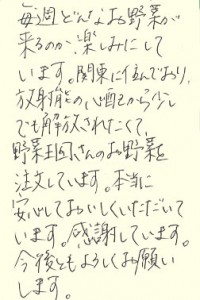 毎週どんなお野菜が
来るのか、楽しみにして
います。関東に住んでおり、
放射能の心配から少し
でも解放されたくて、
野菜王国さんのお野菜を
注文しています。本当に
安心しておいしくいただいて
います。感謝しています。
今後ともよろしくお願い
します。